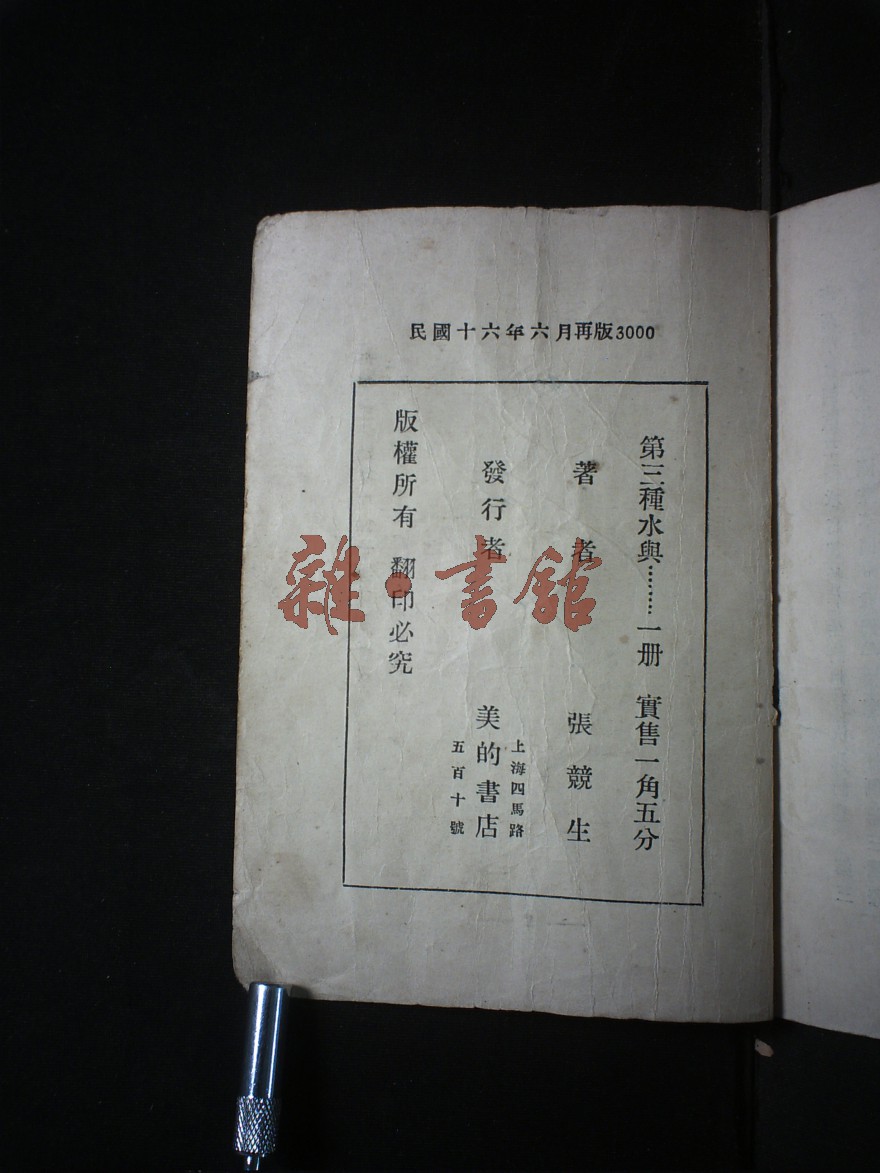 民國十六年六月再版3000
第三種水與………一册 實售一角五分
著者 張競生
發行者 美的書店
上海四馬路
五百十號
版權所有 翻印必究
雜·書館